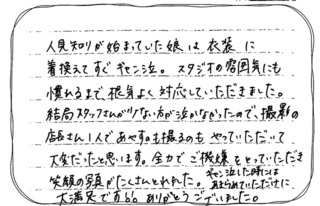 人見知りが始まっていた娘は衣装に
着換えてすぐギャン泣。スタジオの雰囲気にも
慣れるまで根気よく対応していただきました。
結局スタッフさんが少ない方が泣かなかったので、撮影の
店長さん1人であやすのも撮るのもやっていただいて
大変だったと思います。全力でご機嫌をとっていただき
笑顔の写真がたくさんとれた。ギャン泣した時には
あきらめていただけに
大満足です。ありがとうございました。